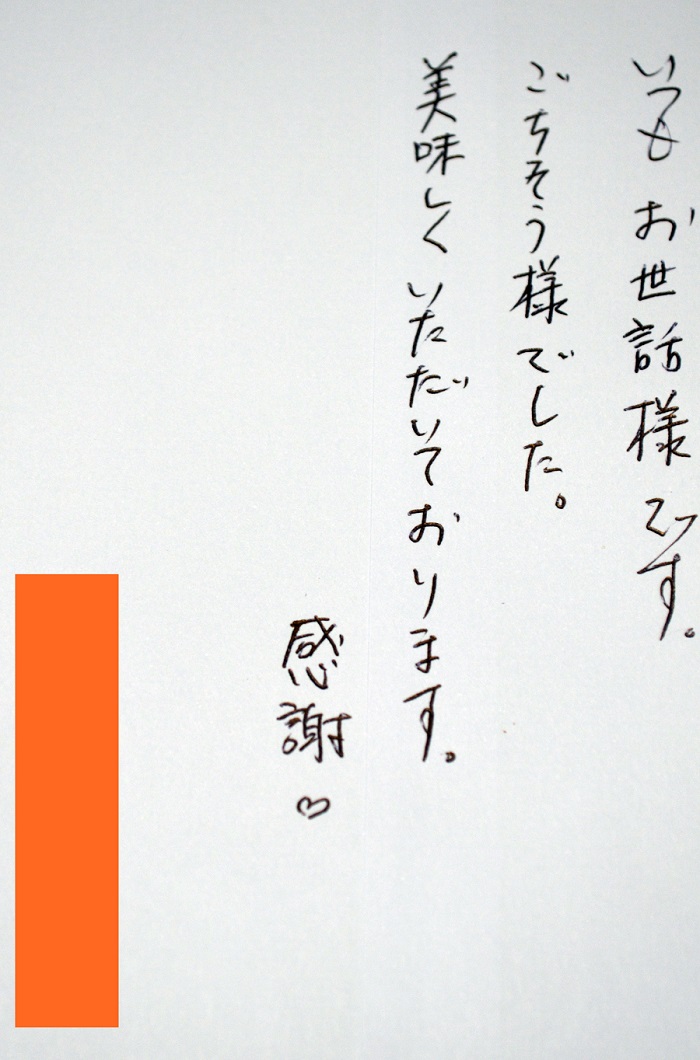 いつもお世話様です。
ごちそう様でした。
美味しくいただいております。
感謝♡